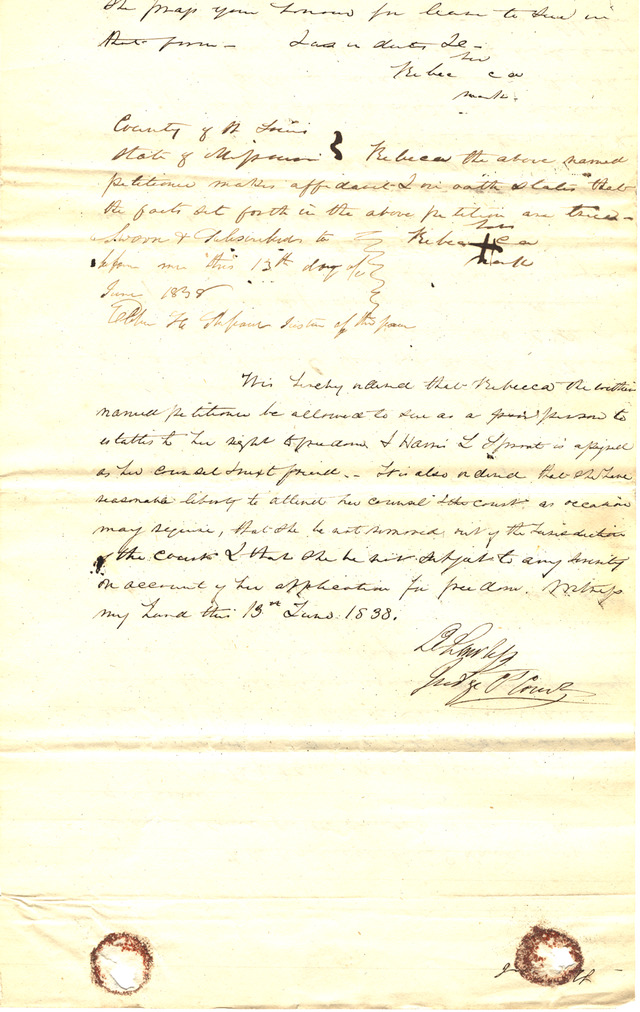 She prays your honour for leave to sue in
that form — And in duty &c —
her
Rebec ca
mark.
County of St Louis
State of Missouri } Rebecca the above named
petitioner makes affidavit & on oath states that
the facts set forth in the above petition are true —
Sworn & Subscribed to her
Rebecca
before me this 13th day of mark
June 1838
Justice of the peace
It is hereby ordered that Rebecca the within
named petitioner be allowed to sue as a poor person to
establish her right to freedom & Harris L Sprout is assigned
as her counsel & next friend. — It is also ordered that she have
reasonable liberty to attend her counsel & the court as occasion
may require, that she be not removed out of the Jurisdiction
of the court & that she be not subject to any severity
on account of her application for freedom. Witness
my hand this 13th June 1838.
Judge Ct Court